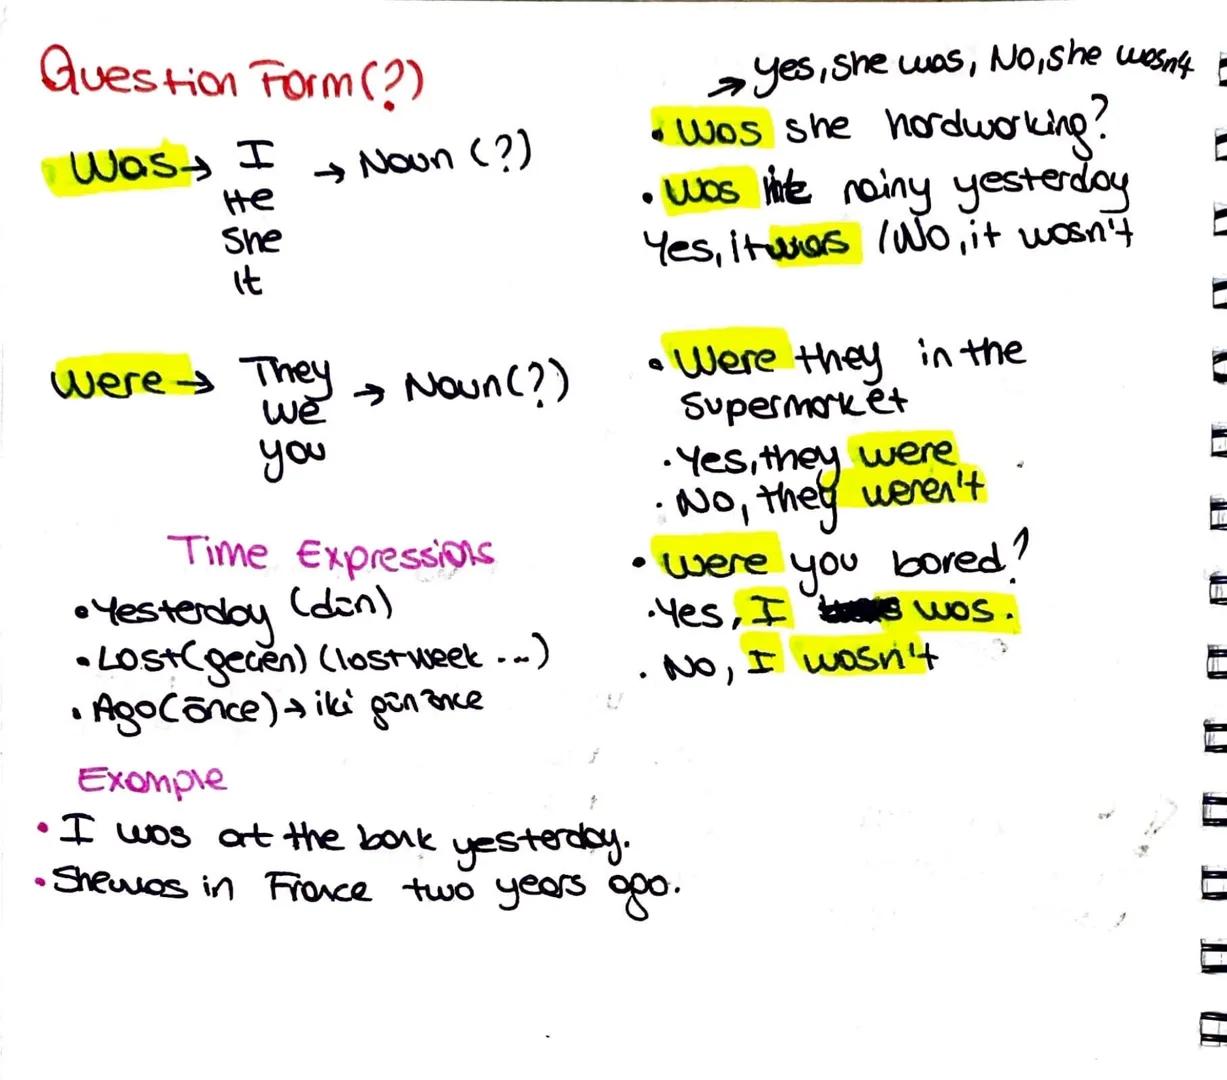 Question Form (?)
Was → I → Noun (?)
He
She
It
Were → They → Noun (?)
we
you
Time Expressions
• Yesterday (dün)
• Last (geçen) (last week ...)
• Ago (önce) → iki gün önce
Example
• I was at the bank yesterday.
• She was in France two years ago.
→ yes, she was, No, she wasn't
• Was she hardworking?
• Was it rainy yesterday
Yes, it was / No, it wasn't
• Were they in the
Supermarket
• Yes, they were
• No, they weren't
• Were you bored?
• Yes, I was.
• No, I wasn't